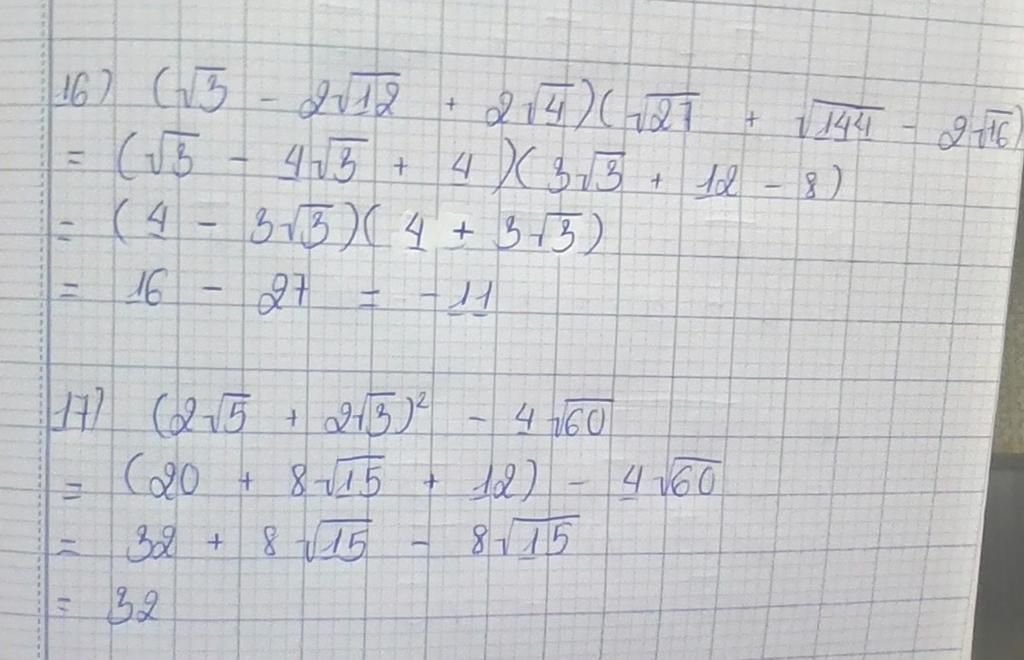 16) (√3 - 2√12 + 2√4)(√27 + √144 - 2√16)
= (√3 - 4√3 + 4)(3√3 + 12 - 8)
= (4 - 3√3)(4 + 3√3)
= 16 - 27 = -11
17) (2√5 + 2√3)² - 4√60
= (20 + 8√15 + 12) - 4√60
= 32 + 8√15 - 8√15
= 32